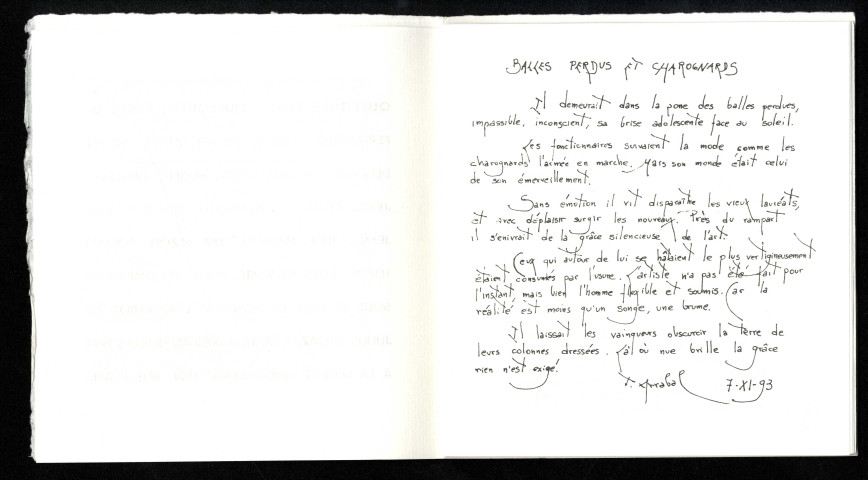 BALLES PERDUS ET CHAROGNARDS
Il demeurait dans la zone des balles perdues,
impassible, inconscient, sa brise adolescente face au soleil.
Les fonctionnaires suivaient la mode comme les
charognards l'armée en marche. Mais son monde était celui
de son émerveillement.
Sans émotion il vit disparaître les vieux lauréats,
et avec déplaisir surgir les nouveaux. Près du rempart
il s'enivrait de la grâce silencieuse de l'art.
Ceux qui autour de lui se hâtaient le plus vertigineusement
étaient consumés par l'usure. L'artiste n'a pas été fait pour
l'instant, mais bien l'homme fragible et soumis. Car la
réalité est moins qu'un songe, une brume.
Il laissait les vainqueurs obscurcir la terre de
leurs colonnes dressées. Là où nue brille la grâce
rien n'est exigé.
F. Arrabal 7-XI-93